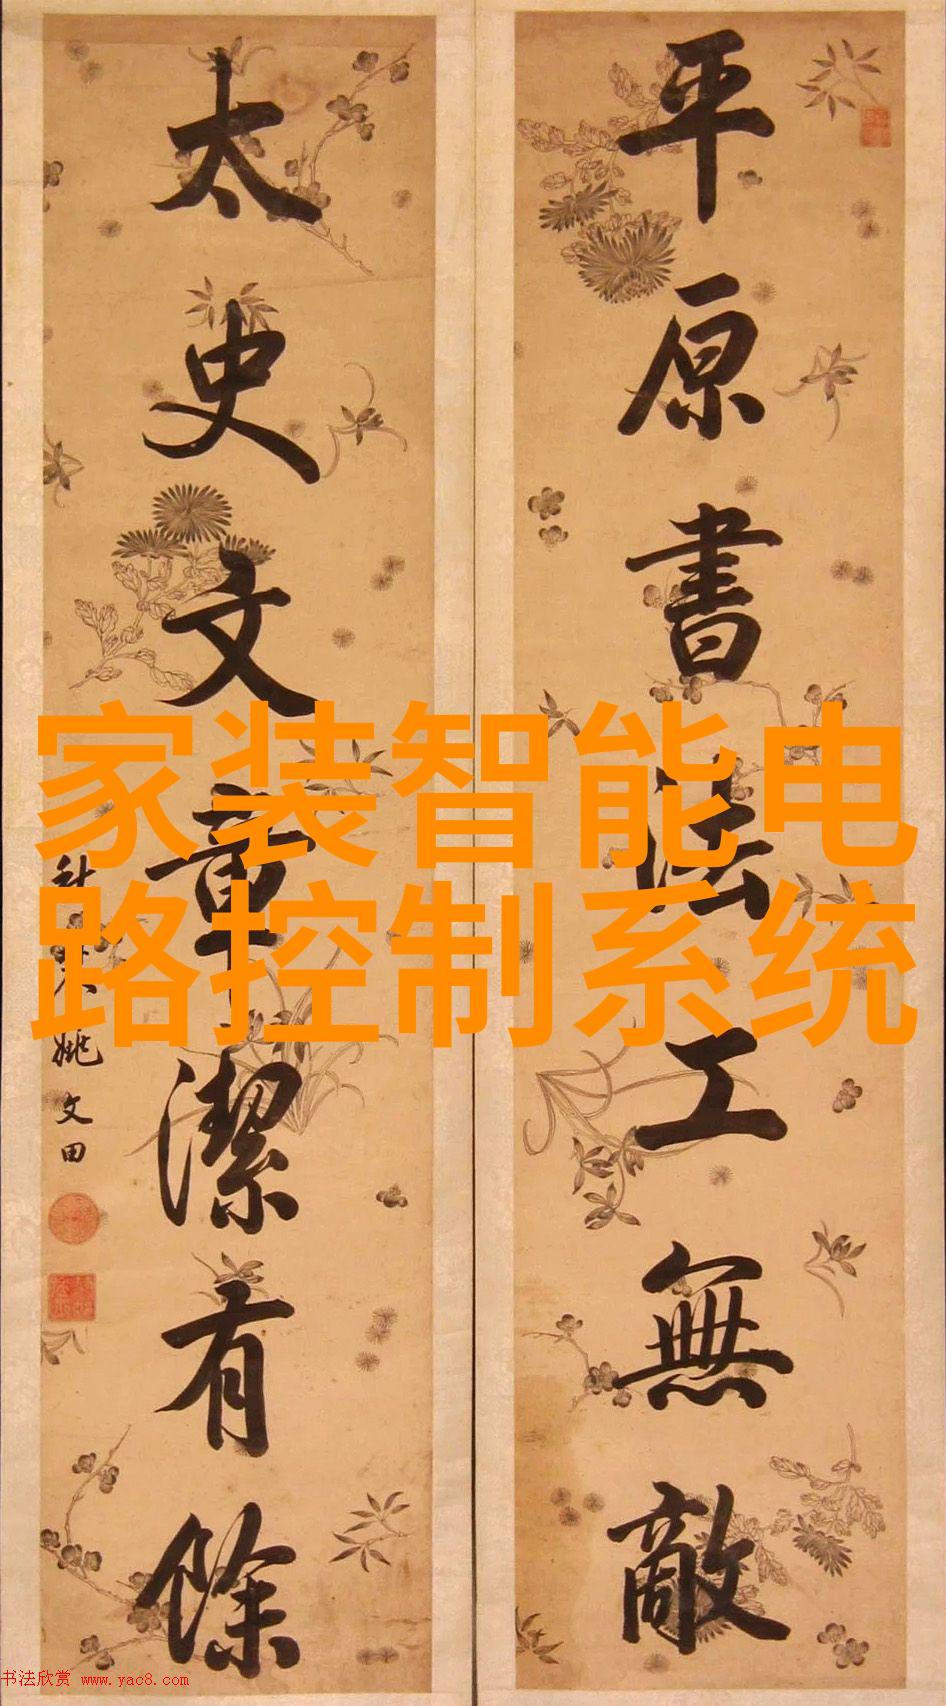 平原書法工無敵
太史文章潔有餘
姚文田
家装智能电
路控制系统
书法欣赏 www.yac8.com